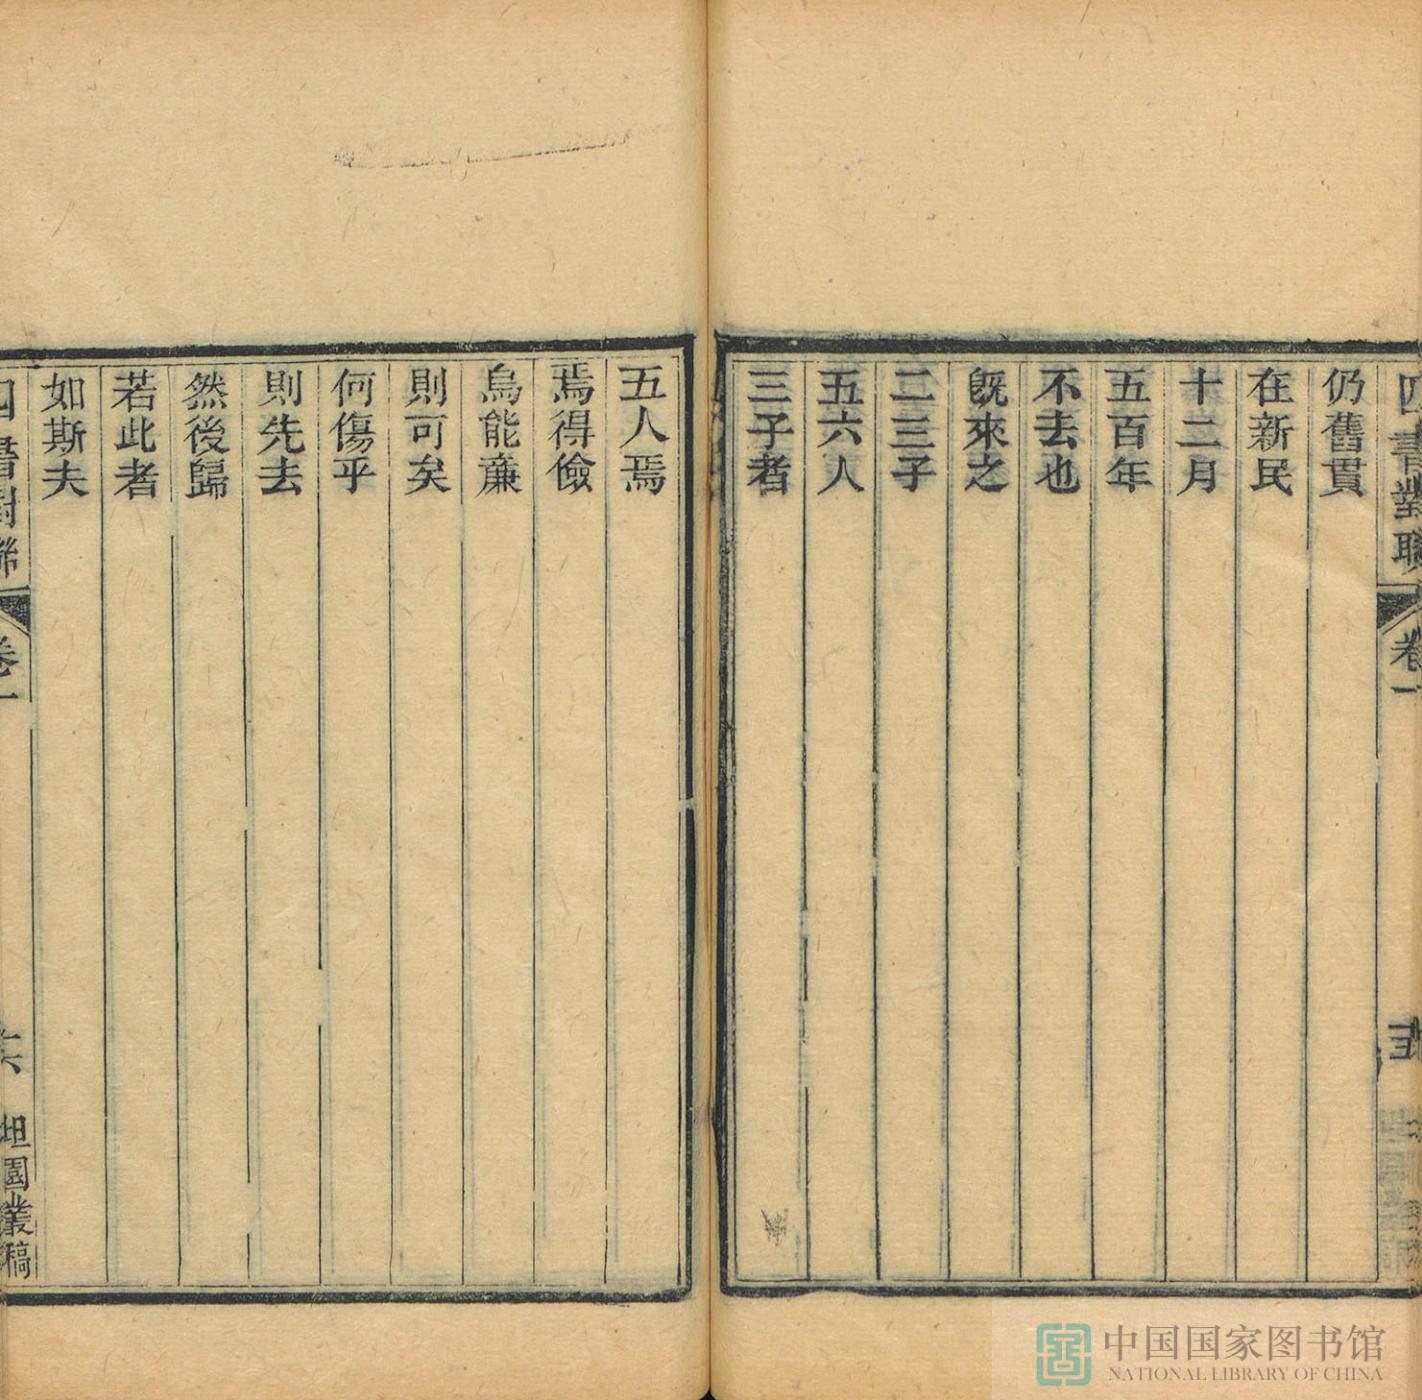 四書對聯 卷一
仍舊貫
在新民
十二月
五百年
不去也
既來之
二三子
五六人
三子者
五人焉
焉得儉
烏能廉
則可矣
何傷乎
則先去
然後歸
若此者
如斯夫
四書對聯 卷一 十六 坦園叢稿
中国国家图书馆
NATIONAL LIBRARY OF CHINA